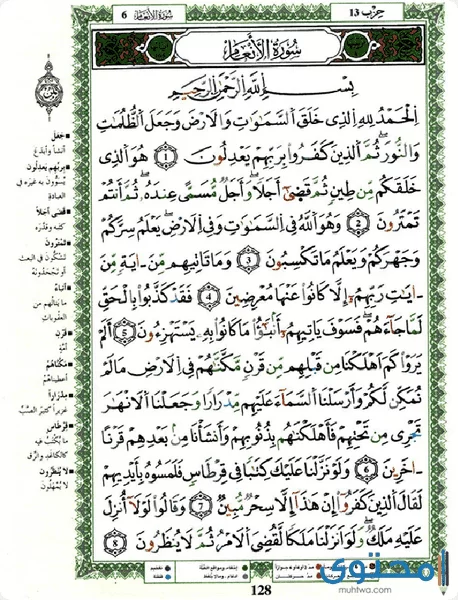 حِزْب 13
سُورَةُ الأَنْعَامِ 6
سُورَةُ الأَنْعَامِ
بِسْمِ اللَّهِ الرَّحْمَٰنِ الرَّحِيمِ
اِلْحَمْدُ لِلهِ اِلذِي خَلَقَ اَلسَّمَٰوَٰتِ وَالَارْضَ وَجَعَلَ اَلظُّلُمَٰتِ
وَالنُّورَ ثُمَّ اَلذِينَ كَفَرُواْ بِرَبِّهِمْ يَعْدِلُونَ 1 هُوَ اَلذِي
خَلَقَكُم مِّن طِينٖ ثُمَّ قَضَىٰٓ أَجَلاٗ وَأَجَلٞ مُّسَمًّى عِندَهُۥ ثُمَّ أَنتُمْ
تَمْتَرُونَ 2 وَهُوَ اَللَّهُ فِي اِلسَّمَٰوَٰتِ وَفِي اِلَارْضِ يَعْلَمُ سِرَّكُمْ
وَجَهْرَكُمْ وَيَعْلَمُ مَا تَكْسِبُونَ 3 وَمَا تَاتِيهِم مِّنَ ـايَةٖ مِّنَ
ـايَٰتِ رَبِّهِمُۥٓ إِلَّا كَانُواْ عَنْهَا مُعْرِضِينَ 4 فَقَدْ كَذَّبُواْ بِالْحَقِّ
لَمَّا جَآءَهُمْ فَسَوْفَ يَاتِيهِمُۥٓ أَنۢبَٰٓؤُاْ مَا كَانُواْ بِهِۦ يَسْتَهْزِءُونَ 5 أَلَمْ
يَرَوْاْ كَمَ اَهْلَكْنَا مِن قَبْلِهِم مِّن قَرْنٖ مَّكَّنَّٰهُمْ فِي اِلَارْضِ مَا لَمْ
نُمَكِّن لَّكُمْ وَأَرْسَلْنَا اَلسَّمَآءَ عَلَيْهِم مِّدْرَاراٗ وَجَعَلْنَا اَلَانْهَٰرَ
تَجْرِي مِن تَحْتِهِمْ فَأَهْلَكْنَٰهُم بِذُنُوبِهِمْ وَأَنشَأْنَا مِنۢ بَعْدِهِمْ قَرْناً
ـاخَرِينَ 6 وَلَوْ نَزَّلْنَا عَلَيْكَ كِتَٰباٗ فِي قِرْطَاسٖ فَلَمَسُوهُ بِأَيْدِيهِمْ
لَقَالَ اَلذِينَ كَفَرُوٓاْ إِنْ هَٰذَآ إِلَّا سِحْرٞ مُّبِينٞ 7 وَقَالُواْ لَوْلَآ أُنزِلَ
عَلَيْهِ مَلَكٞ وَلَوَ اَنزَلْنَا مَلَكاٗ لَّقُضِيَ اَلَامْرُ ثُمَّ لَا يُنظَرُونَ 8
جَعَلَ
أنشأ وأبدع
بربهم يعدلون
يسوون به غيره في
العبادة
قضى أجلا
كتبه وقدره
تمترون
تشكون في البعث
أو تجحدونه
أنباء
ما ينالهم من
العقوبات
قرن
أمة
مكناهم
أعطيناهم
مدرارا
غزيرا كثير الصب
قرطاس
ما يكتب فيه
كالكاغد والرق
لا ينظرون
لا يمهلون
128
محتوى
muhtwa.com